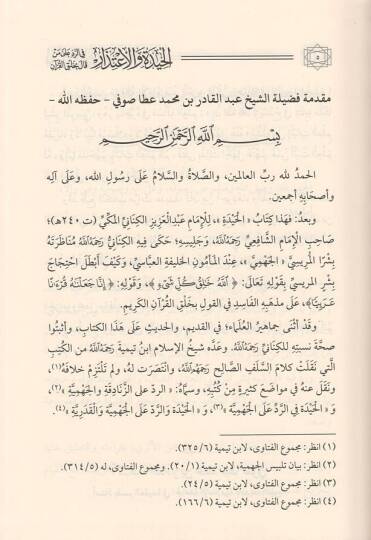 ٥
الحيدة والاعتذار
في الرد على من
قال بخلق القرآن
مقدمة فضيلة الشيخ عبد القادر بن محمد عطا صوفي - حفظه الله -
بِسْمِ اللَّهِ الرَّحْمَنِ الرَّحِيمِ
الحمدُ لله ربِّ العالمين، والصَّلاةُ والسَّلامُ عَلَى رسُولِ الله، وعَلَى آلِه
وأصحَابِهِ أجمعين.
وبعدُ: فهَذا كِتَابُ «الحَيْدَةِ»، للإمَامِ عَبْدِالعَزِيزِ الكِنَانِيِّ المكِّيِّ (ت ٢٤٠هـ)؛
صاحِبِ الإمَامِ الشَّافِعِيِّ رَحِمَهُ اللَّهُ، وجَلِيسِهِ؛ حكَى فيه الكِنَانِيُّ رَحِمَهُ اللَّهُ مُنَاظَرَتَهُ
بِشْرًا المَرِيسِيَّ «الجَهْمِيَّ»، عِنْدَ المأمُونِ الخليفَةِ العبَّاسِي، وكَيْفَ أبْطَلَ احْتِجَاجَ
بِشْرٍ المريسي بِقَوْلِهِ تَعَالَى: ﴿اللَّهُ خَالِقُ كُلِّ شَيْءٍ﴾، وقَوْلِهِ: ﴿إِنَّا جَعَلْنَاهُ قُرْآنًا
عَرَبِيًّا﴾، عَلَى مذهَبِهِ الفَاسِدِ في القَولِ بخَلْقِ القُرْآنِ الكَرِيمِ.
وقَدْ أثْنَى جماهِيرُ العُلَمَاءِ؛ في القديم، والحديثِ عَلَى هَذَا الكتابِ، وأثبتُوا
صحَّةَ نسبتِه للكِنَانِيِّ رَحِمَهُ اللَّهُ. وعَدَّه شيخُ الإسلامِ ابنُ تيميةَ رَحِمَهُ اللَّهُ من الكُتُبِ
الَّتي نَقَلَتْ كلامَ السَّلَفِ الصَّالحِ رَحِمَهُمُ اللَّهُ، وانتصَرَتْ لهُ، ولم تَلْتَزِمْ خلافَهُ(١)،
ونقَلَ عنهُ في مواضعَ كثيرةٍ من كُتُبِهِ، وسمَّاهُ: «الرد عَلَى الزَّنَادِقَةِ والجَهْمِيَّةِ»(٢)،
وَ«الحَيْدَةَ في الرَّدِّ عَلَى الجَهْمِيَّةِ»(٣)، وَ«الحَيْدَة والرَّدَّ عَلَى الجَهْمِيَّةِ وَالقَدَرِيَّةِ»(٤).
(١) انظر: مجموع الفتاوى، لابن تيمية (٣٢٥/٦).
(٢) انظر: بيان تلبيس الجهمية، لابن تيمية (٢٠/١). ومجموع الفتاوى، له (٣١٤/٥).
(٣) انظر: مجموع الفتاوى، لابن تيمية (٢٤/٥).
(٤) انظر: مجموع الفتاوى، لابن تيمية (١٦٦/٦).